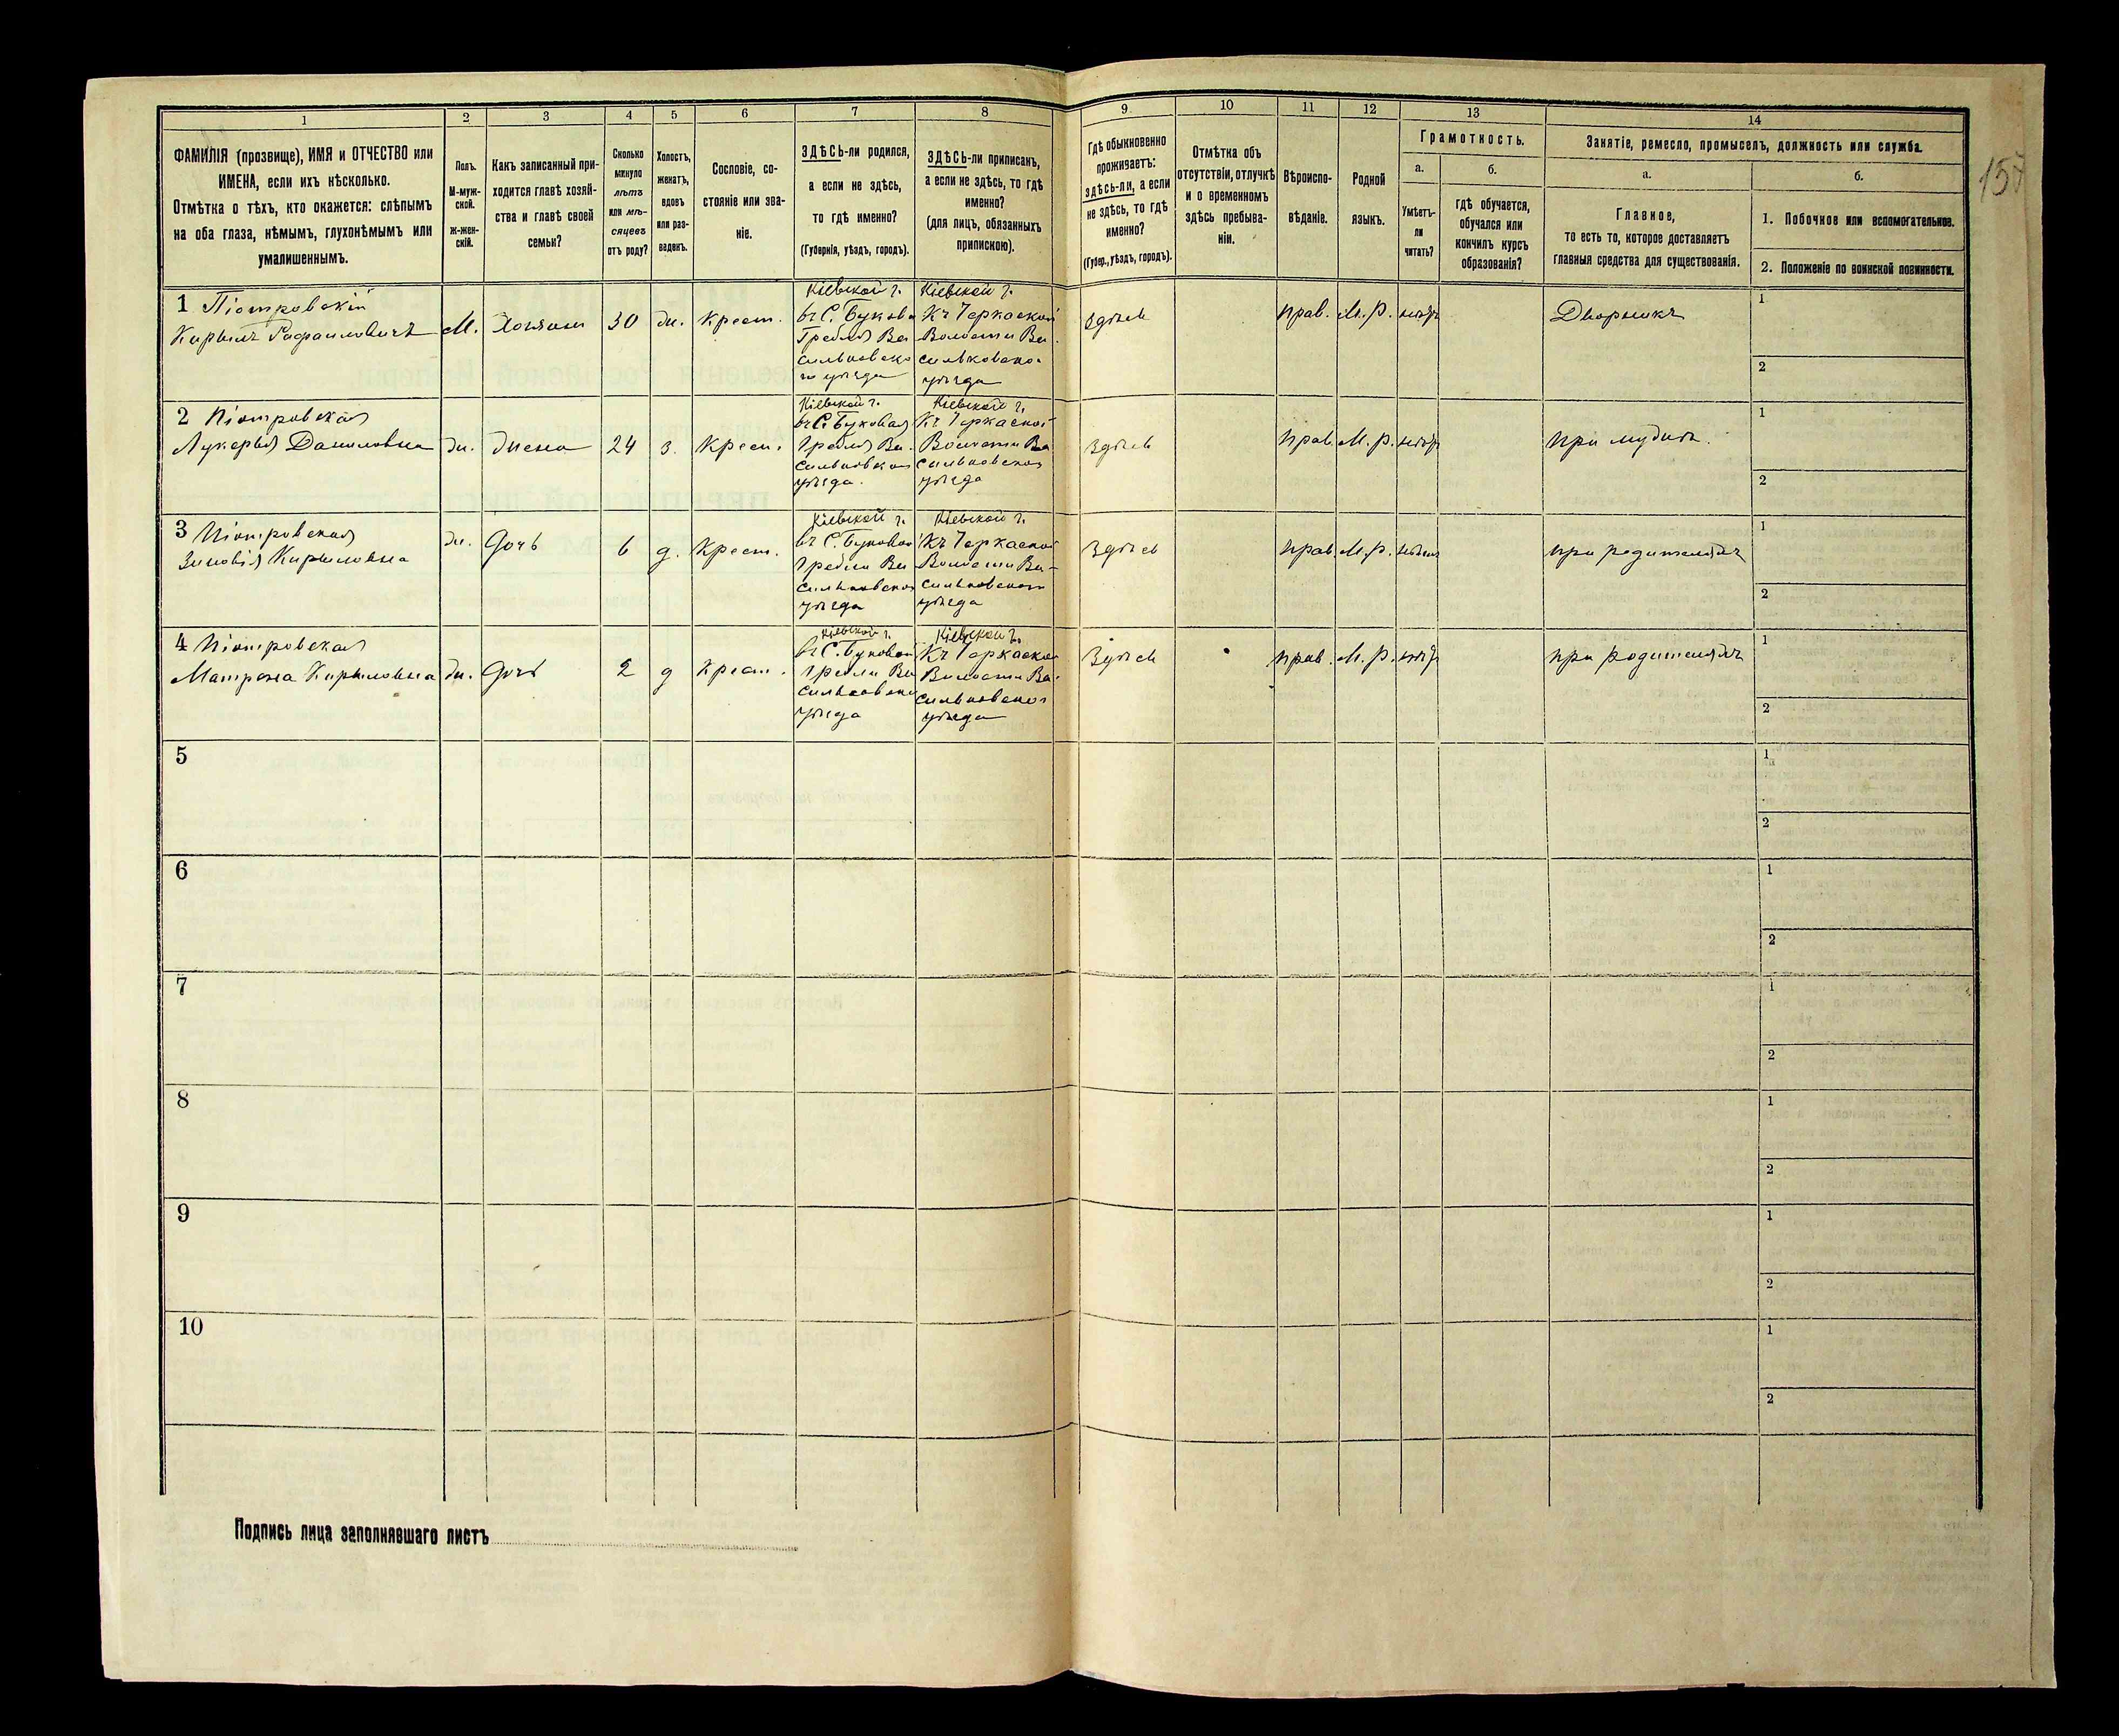 1 2 3 4 5 6 7 8 9 10 11 12 13 14
ФАМИЛІЯ (прозвище), ИМЯ и ОТЧЕСТВО или
ИМЕНА, если ихъ нѣсколько.
Отмѣтка о тѣхъ, кто окажется: слѣпымъ
на оба глаза, нѣмымъ, глухонѣмымъ или
умалишеннымъ.
Полъ.
М-муж-
ской.
Ж-жен-
скій.
Какъ записанный при-
ходится главѣ хозяй-
ства и главѣ своей
семьи?
Сколько
минуло
лѣтъ
или мѣ-
сяцевъ
отъ роду?
Холостъ,
женатъ,
вдовъ
или раз-
веденъ.
Сословіе, со-
стояніе или зва-
ніе.
ЗДѢСЬ-ли родился,
а если не здѣсь,
то гдѣ именно?
(Губернія, уѣздъ, городъ).
ЗДѢСЬ-ли приписанъ,
а если не здѣсь, то гдѣ
именно?
(для лицъ, обязанныхъ
припискою).
Гдѣ обыкновенно
проживаетъ:
здѣсь-ли, а если
не здѣсь, то гдѣ
именно?
(Губер., уѣздъ, городъ).
Отмѣтка объ
отсутствіи, отлучкѣ
и о временномъ
здѣсь пребыва-
ніи.
Вѣроиспо-
вѣданіе.
Родной
языкъ.
Грамотность.
а.
Умѣетъ-
ли
читать?
б.
гдѣ обучается,
обучался или
кончилъ курсъ
образованія?
Занятіе, ремесло, промыселъ, должность или служба.
а.
Главное,
то есть то, которое доставляетъ
главныя средства для существованія.
б.
1. Побочное или вспомогательное.
2. Положеніе по воинской повинности.
1 Піотровскій
Кирылъ Рафаиловичъ
М.
Хозяинъ
30
Крест.
Кіевской г.
Кіевской г.
Къ Черкаской
уѣзда
уѣзда
здѣсь
прав.
М. Р.
Дворникъ
1
2
2 Піотровская
Лукерья Даниловна
ж.
жена
24
з.
Крест.
Кіевской г.
Кіевской г.
уѣзда
уѣзда
здѣсь
прав.
М. Р.
при мужѣ
1
2
3 Піотровская
Зиновія Кирыловна
ж.
Дочь
6
д.
Крест.
Кіевской г.
Кіевской г.
уѣзда
уѣзда
здѣсь
прав.
М. Р.
при родителяхъ
1
2
4 Піотровская
Матрона Кирыловна
ж.
Дочь
2
д
Крест.
Кіевской г.
Кіевской г.
уѣзда
уѣзда
здѣсь
прав.
М. Р.
при родителяхъ
1
2
5
1
2
6
1
2
7
1
2
8
1
2
9
1
2
10
1
2
Подпись лица заполнявшаго листъ